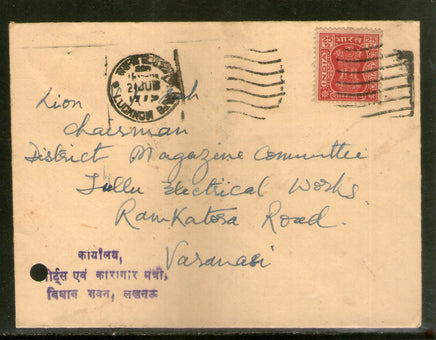 25 भारत 25
INDIA
LUCKNOW
Lion
Chairman
District Magazine Committee
Tullu Electrical Works
Ramkatora Road.
Varanasi
कार्यालय,
एवं कारागार मंत्री,
विधान भवन, लखनऊ